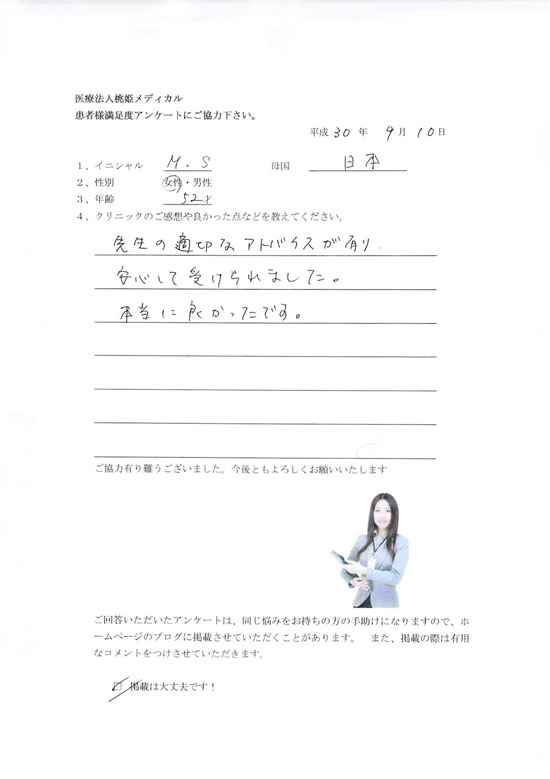 医療法人桃姫メディカル
患者様満足度アンケートにご協力下さい。
平成 30 年 9 月 10 日
1、イニシャル M.S 母国 日本
2、性別 女性・男性
3、年齢 52才
4、クリニックのご感想や良かった点などを教えてください。
先生の適切なアドバイスが有り、
安心して受けられました。
本当に良かったです。
ご協力有り難うございました。今後ともよろしくお願いいたします
ご回答いただいたアンケートは、同じ悩みをお持ちの方の手助けになりますので、ホ
ームページのブログに掲載させていただくことがあります。 また、掲載の際は有用
なコメントをつけさせていただきます。
□ 掲載は大丈夫です！